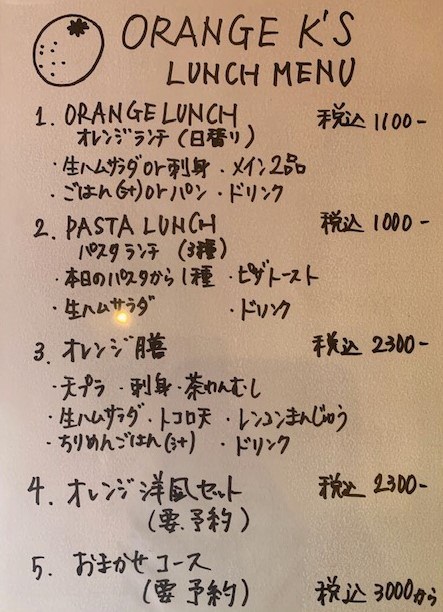 ORANGE K'S
LUNCH MENU
1. ORANGE LUNCH 税込 1100-
オレンジランチ (日替り)
・生ハムサラダor刺身 ・メイン2品
・ごはん(汁)orパン ・ドリンク
2. PASTA LUNCH 税込 1000-
パスタランチ (3種)
・本日のパスタから1種 ・ピザトースト
・生ハムサラダ ・ドリンク
3. オレンジ膳 税込 2300-
・天プラ ・刺身 ・茶わんむし
・生ハムサラダ ・トコロ天 ・レンコンまんじゅう
・ちりめんごはん(汁) ・ドリンク
4. オレンジ洋風セット 税込 2300-
(要予約)
5. おまかせコース
(要予約) 税込 3000から